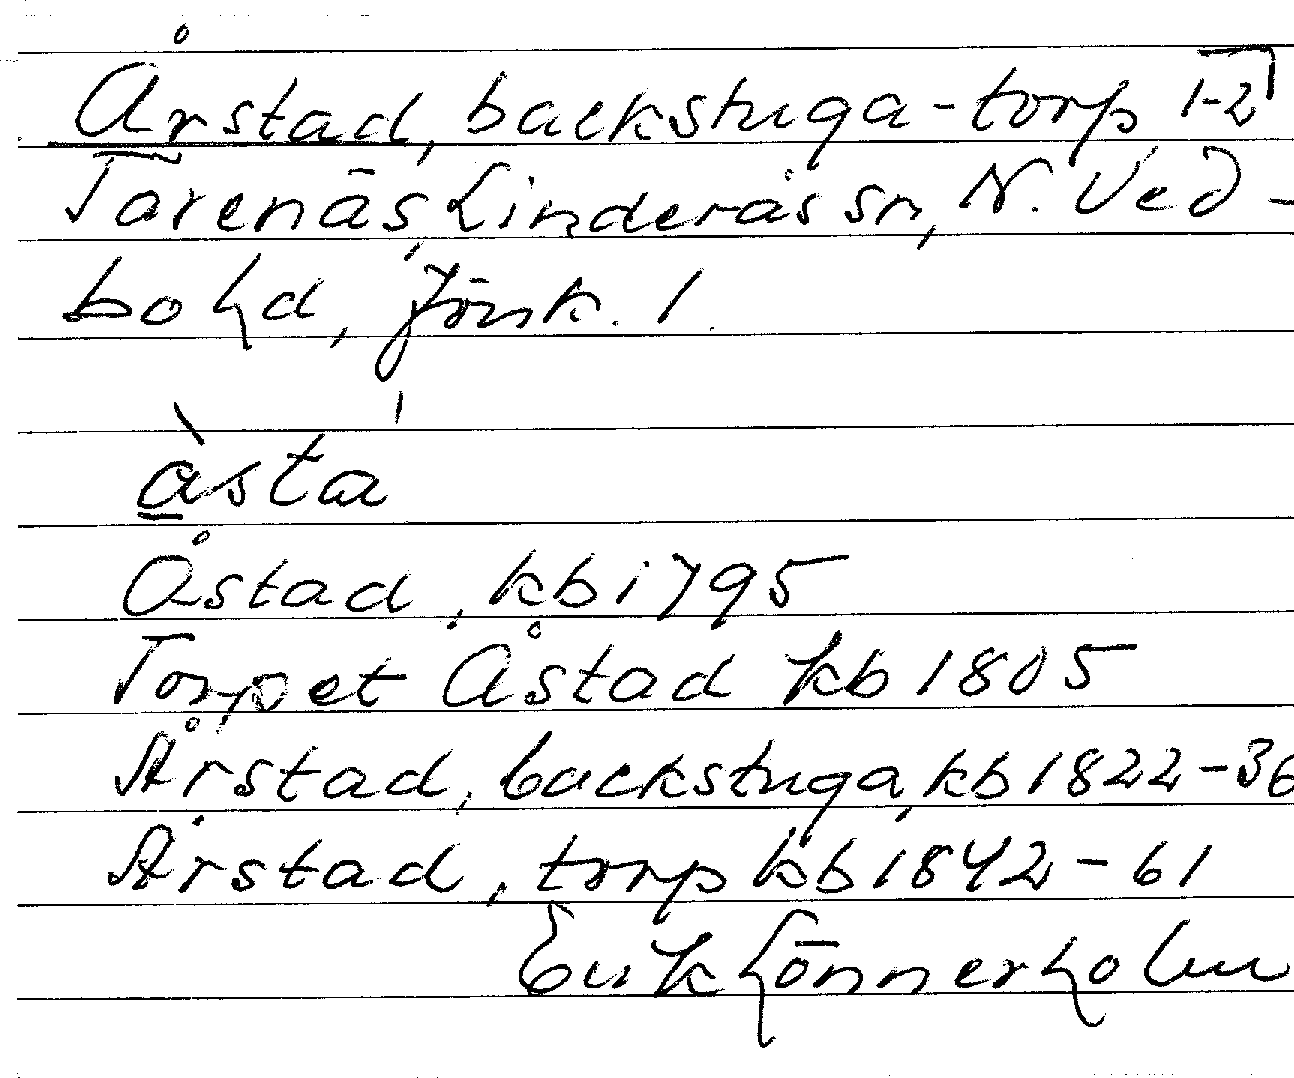 Årstad, backstuga-torp 1-2
Tarenäs, Linderås sn, N. Ved-
bohd, Jönk. l.
àsta
Åstad, kb 1795
Torpet Åstad kb 1805
Årstad, backstuga, kb 1822-36
Årstad, torp kb 1842-61
Erik Lönnerholm